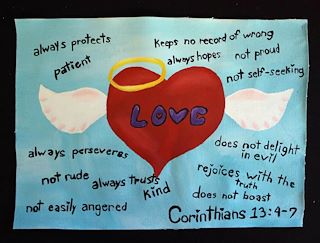 always protects
patient
keeps no record of wrong
always hopes
not proud
not self-seeking
LOVE
always perseveres
not rude
always trusts
kind
not easily angered
does not delight
in evil
rejoices with the
truth
does not boast
Corinthians 13:4-7